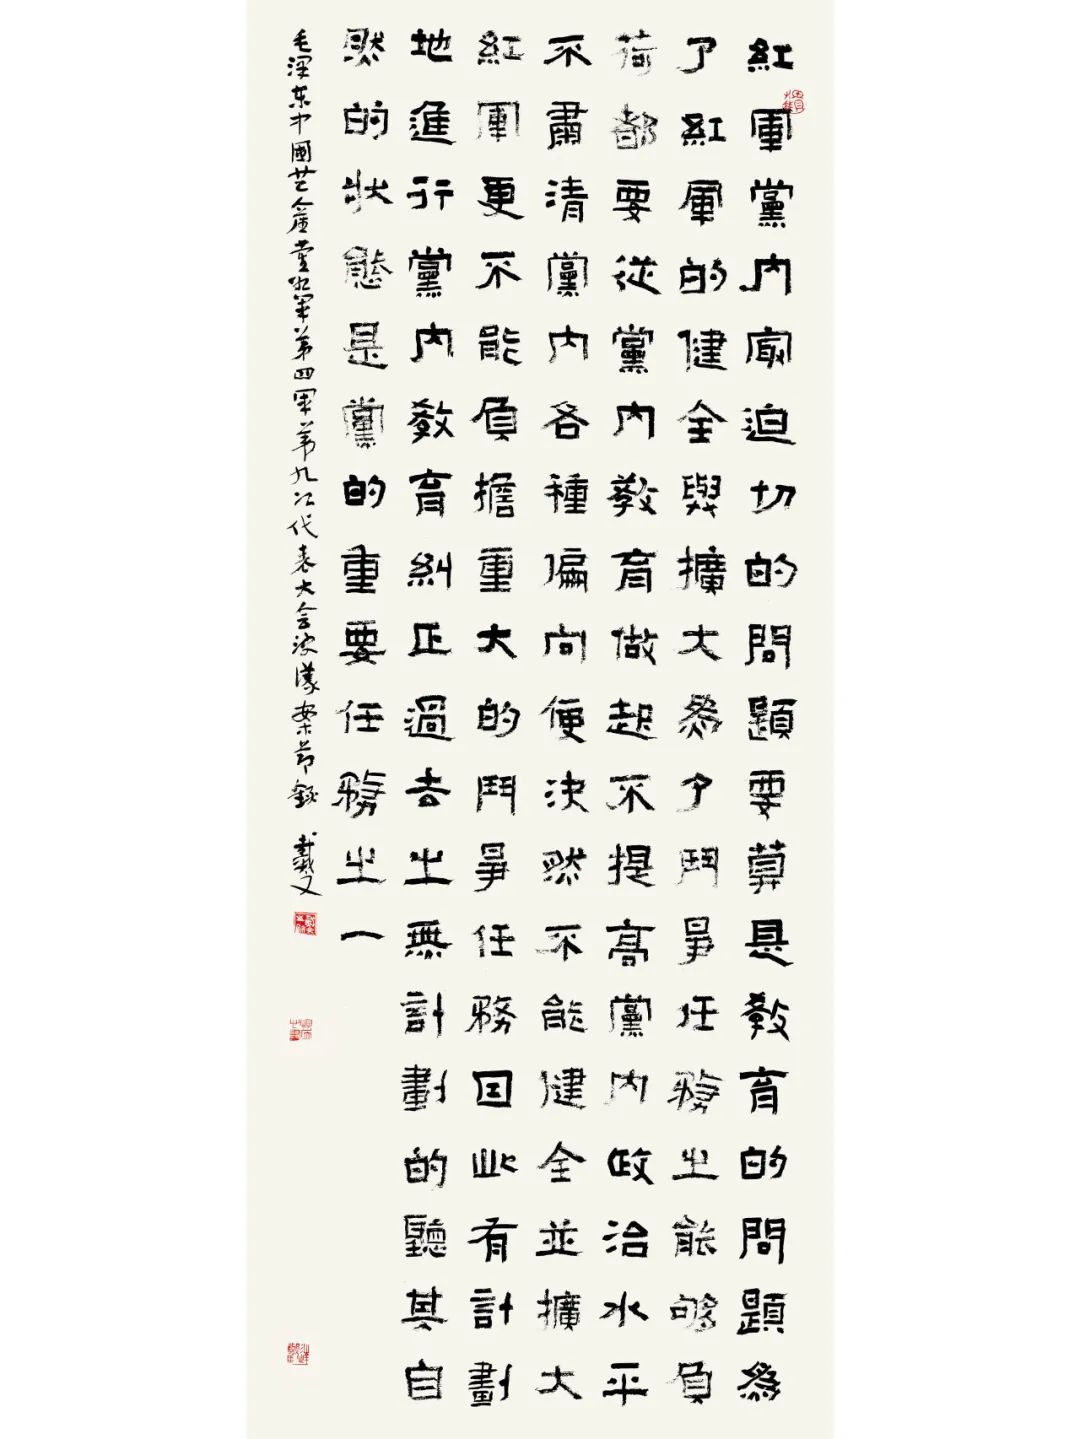 紅軍黨内最迫切的問題要算是教育的問題為
了紅軍的健全與擴大為了鬥爭任務之能夠負
荷都要從黨内教育做起不提高黨内政治水平
不肅清黨内各種偏向便決然不能健全並擴大
紅軍更不能負擔重大的鬥爭任務因此有計劃
地進行黨内教育糾正過去之無計劃的聽其自
然的狀態是黨的重要任務之一
毛澤东中國共產黨紅軍第四軍第九次代表大会決議案節錄 戴又